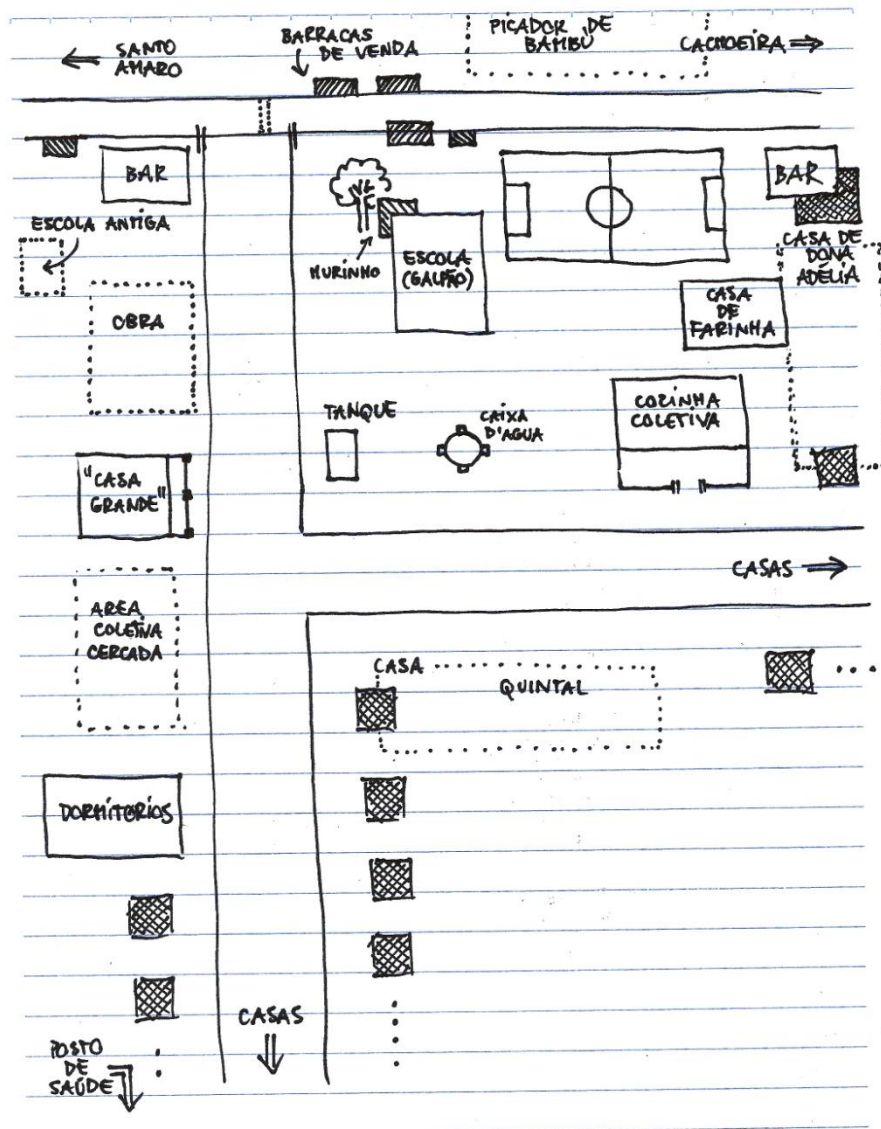 SANTO
AMARO
BARRACAS
DE VENDA
PICADOR DE
BAMBÚ
CACHOEIRA
BAR
BAR
ESCOLA ANTIGA
MURINHO
ESCOLA
(GALPÃO)
CASA DE
DONA
ADÉLIA
CASA
DE
FARINHA
OBRA
TANQUE
CAIXA
D'AGUA
COZINHA
COLETIVA
"CASA
GRANDE"
CASAS
AREA
COLETIVA
CERCADA
CASA
QUINTAL
DORMITÓRIOS
CASAS
POSTO
DE
SAÚDE